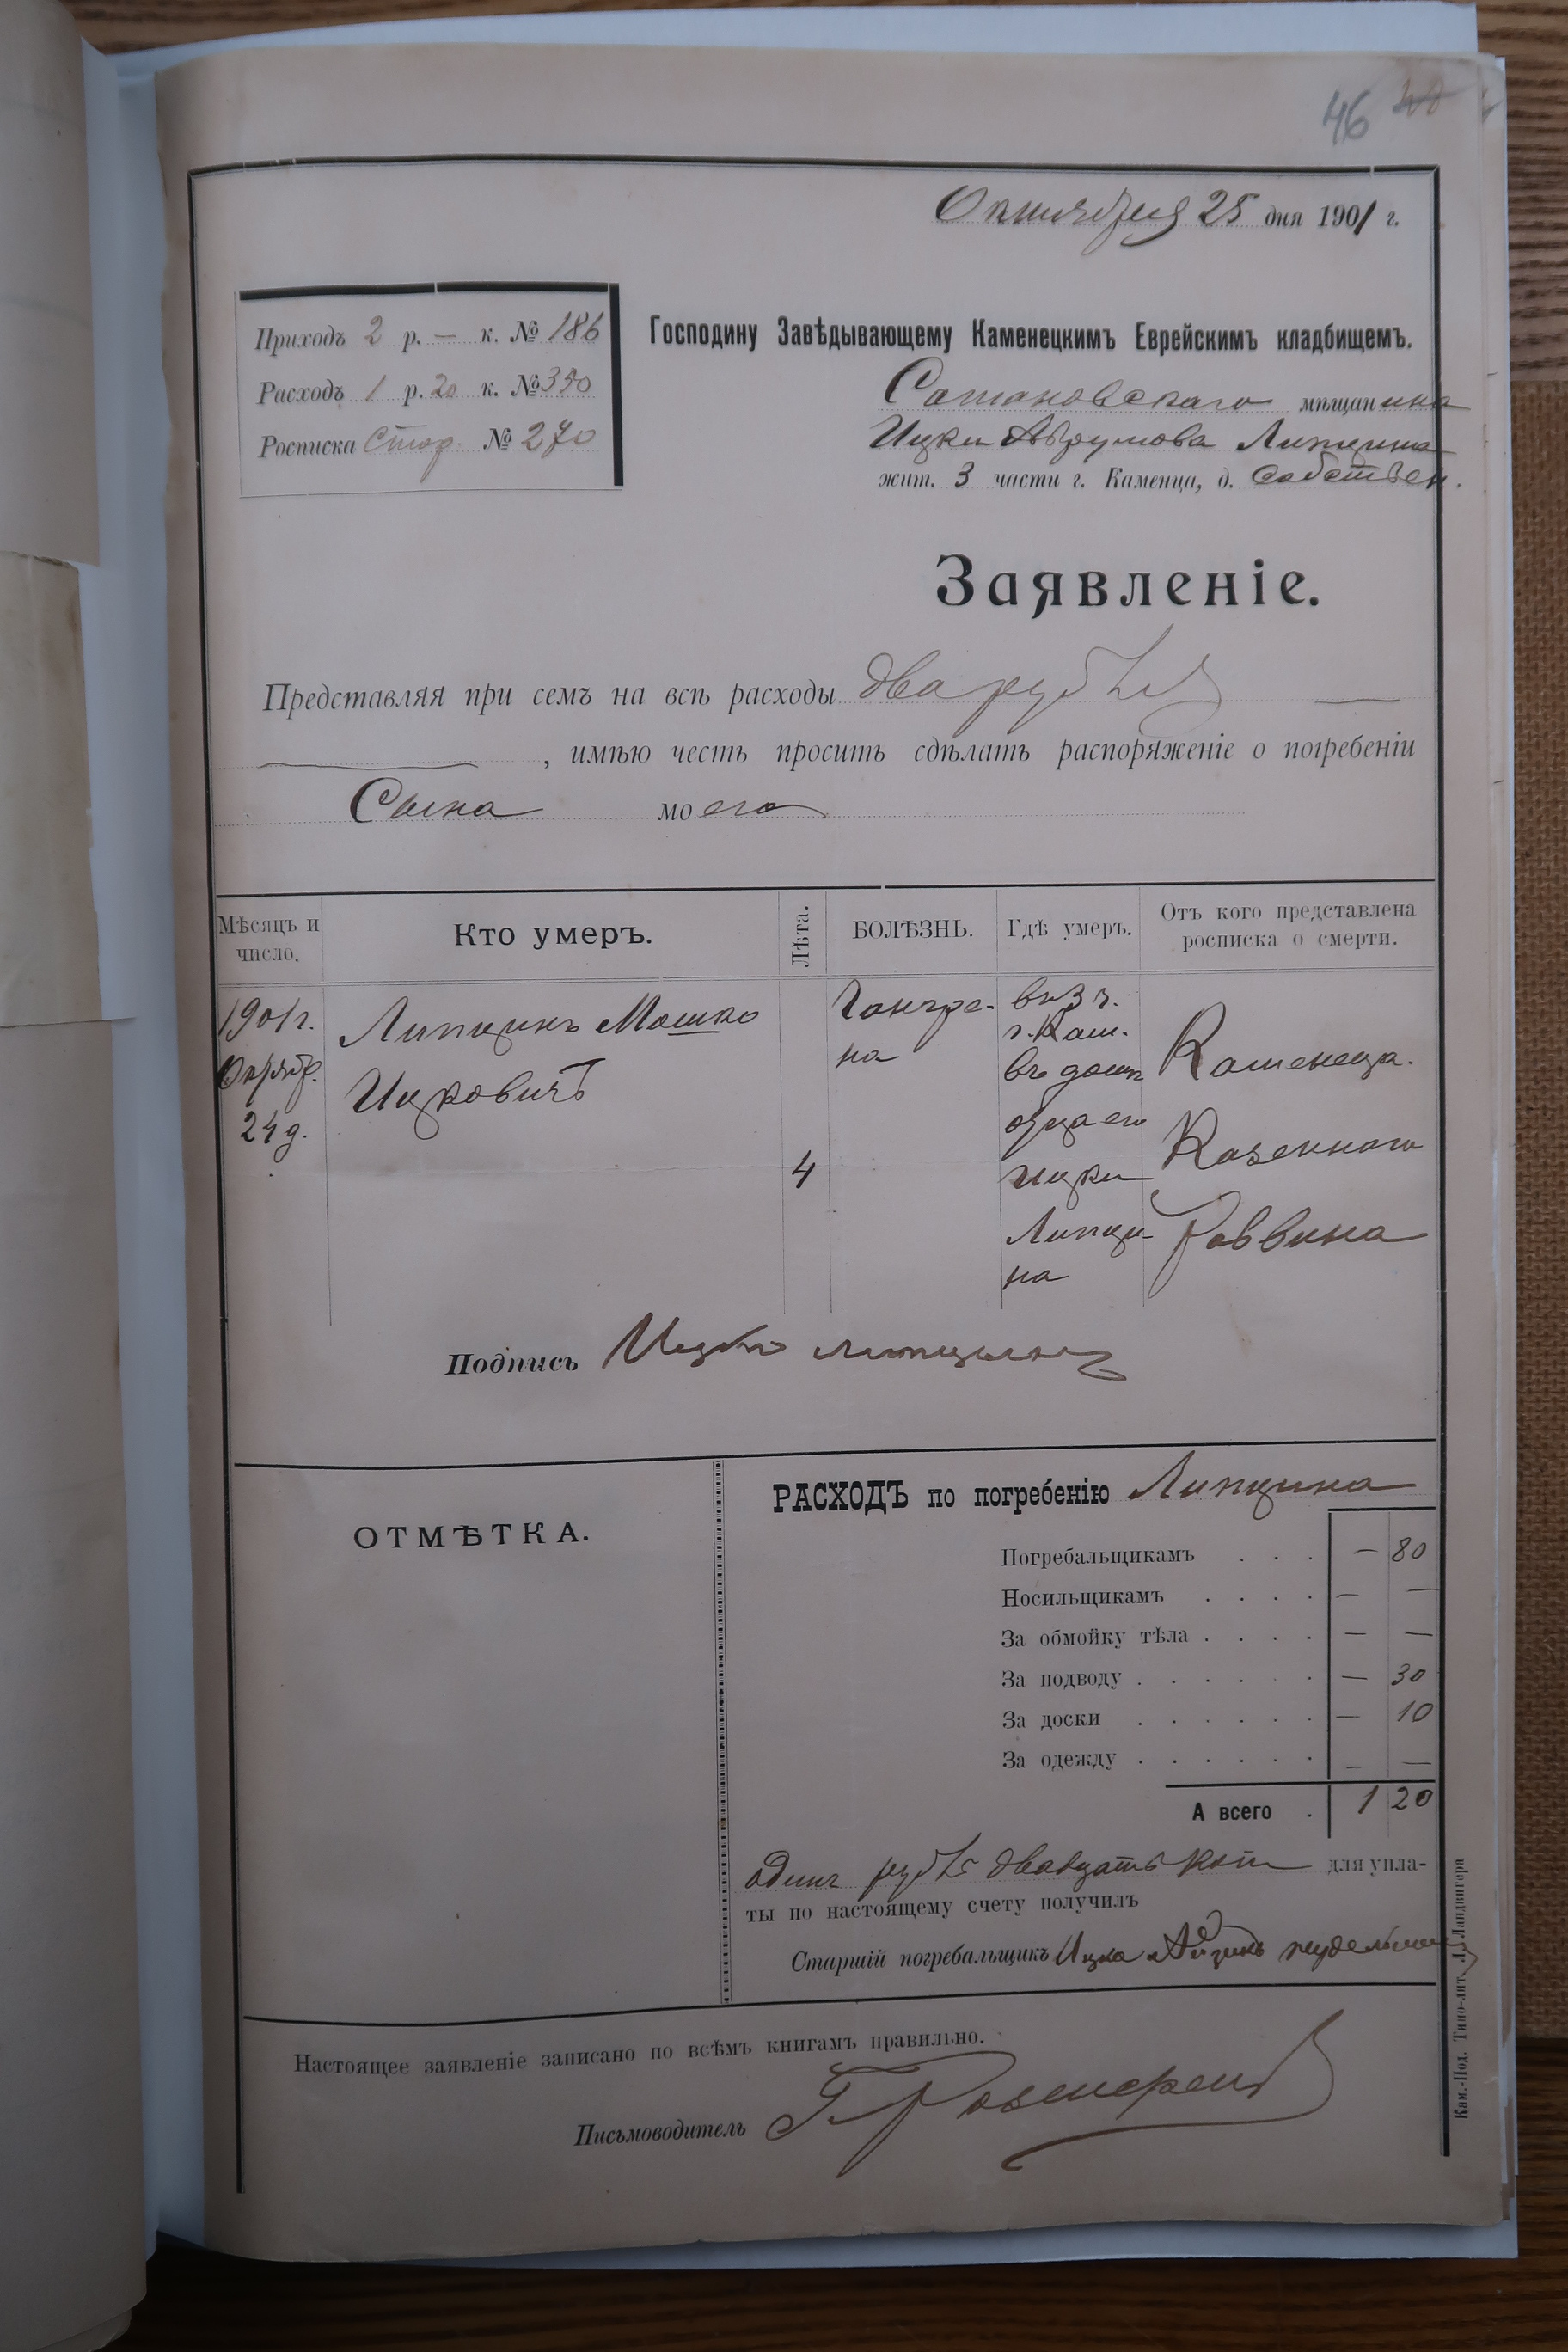 46
Октября 25 дня 1901 г.
Приходъ 2 р. — к. № 186
Расходъ 1 р. 20 к. № 390
Росписка Стар. № 270
Господину Завѣдывающему Каменецкимъ Еврейскимъ кладбищемъ.
Сатановскаго мѣщанина
Ицки Аврумова Липцина
жит. 3 части г. Каменца, д. Собствен.
Заявленіе.
Представляя при семъ на всѣ расходы два рубля —
— , имѣю честь просить сдѣлать распоряженіе о погребеніи
Сына моего
Мѣсяцъ и число.
Кто умеръ.
Лѣта.
БОЛѢЗНЬ.
Гдѣ умеръ.
Отъ кого представлена росписка о смерти.
1901 г.
Октяб.
24 д.
Липцинъ Мошко
Ицковичъ
4
Гангре-
на
въ 3 ч.
г. Кам.
въ домѣ
отца его
Ицки
Липци-
на
Каменец.
Казеннаго
Раввина
Подпись Ицко Липцинъ
ОТМѢТКА.
РАСХОДЪ по погребенію Липцина
Погребальщикамъ . . . — 80
Носильщикамъ . . . . — —
За обмойку тѣла . . . . — —
За подводу . . . . . . — 30
За доски . . . . . . — 10
За одежду . . . . . . — —
А всего . 1 20
одинъ рубль двадцать коп для упла-
ты по настоящему счету получилъ
Старшій погребальщикъ Ицка Айзикъ
Настоящее заявленіе записано по всѣмъ книгамъ правильно.
Письмоводитель Г. Розенфельд
Кам.-Под. Типо-лит. Л. Ландвигера